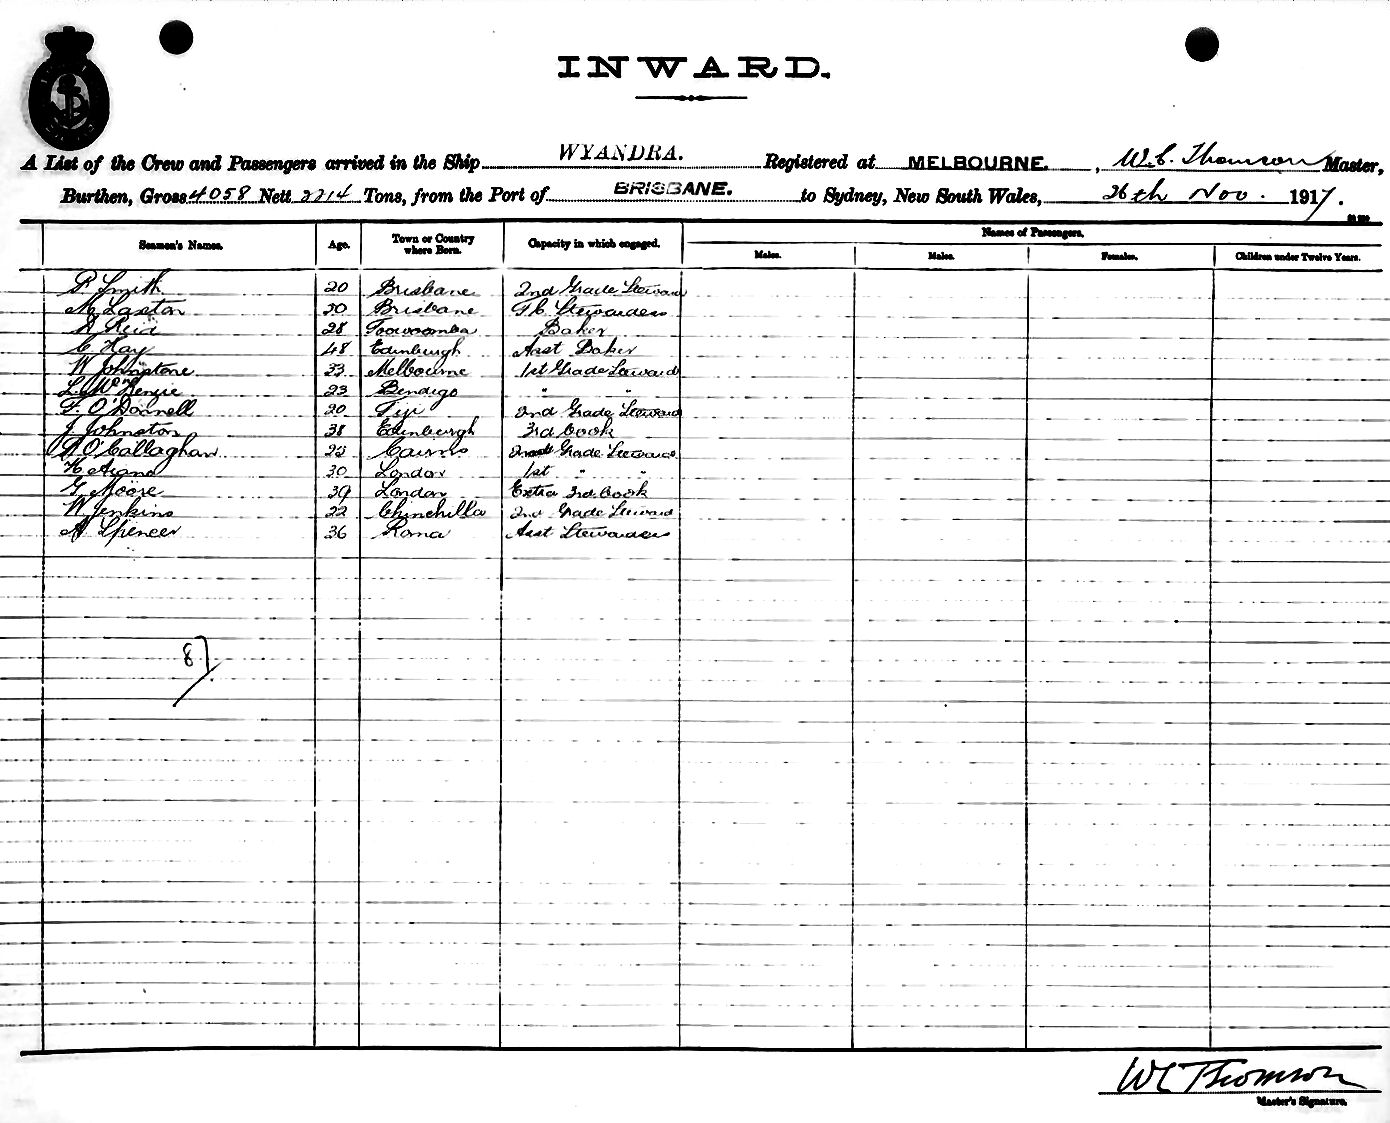 INWARD.
A List of the Crew and Passengers arrived in the Ship WYANDRA. Registered at MELBOURNE. , W. C. Thomson Master,
Burthen, Gross 4058 Nett 2214 Tons, from the Port of BRISBANE. to Sydney, New South Wales, 26th Nov. 1917.
Seamen's Names. Age. Town or Country where Born. Capacity in which engaged. Names of Passengers.
Males. Males. Females. Children under Twelve Years.
Smith 20 Brisbane 2nd Grade Steward
M Laxton 30 Brisbane Stewardess
Reid 28 Toowoomba Baker
C Hay 48 Edinburgh Asst Baker
W Johnstone 33 Melbourne 1st Grade Steward
L. McKenzie 23 Bendigo " "
F. O'Donnell 20 Fiji 2nd Grade Steward
J. Johnston 38 Edinburgh 3rd Cook
O'Callaghan Cairns 2nd Grade Steward
30 London 1st " "
G Moore 39 London Extra 3rd Cook
W Jenkins 22 Chinchilla 2nd Grade Steward
A Spencer 36 Roma Asst Stewardess
87
WC Thomson
Master's Signature.